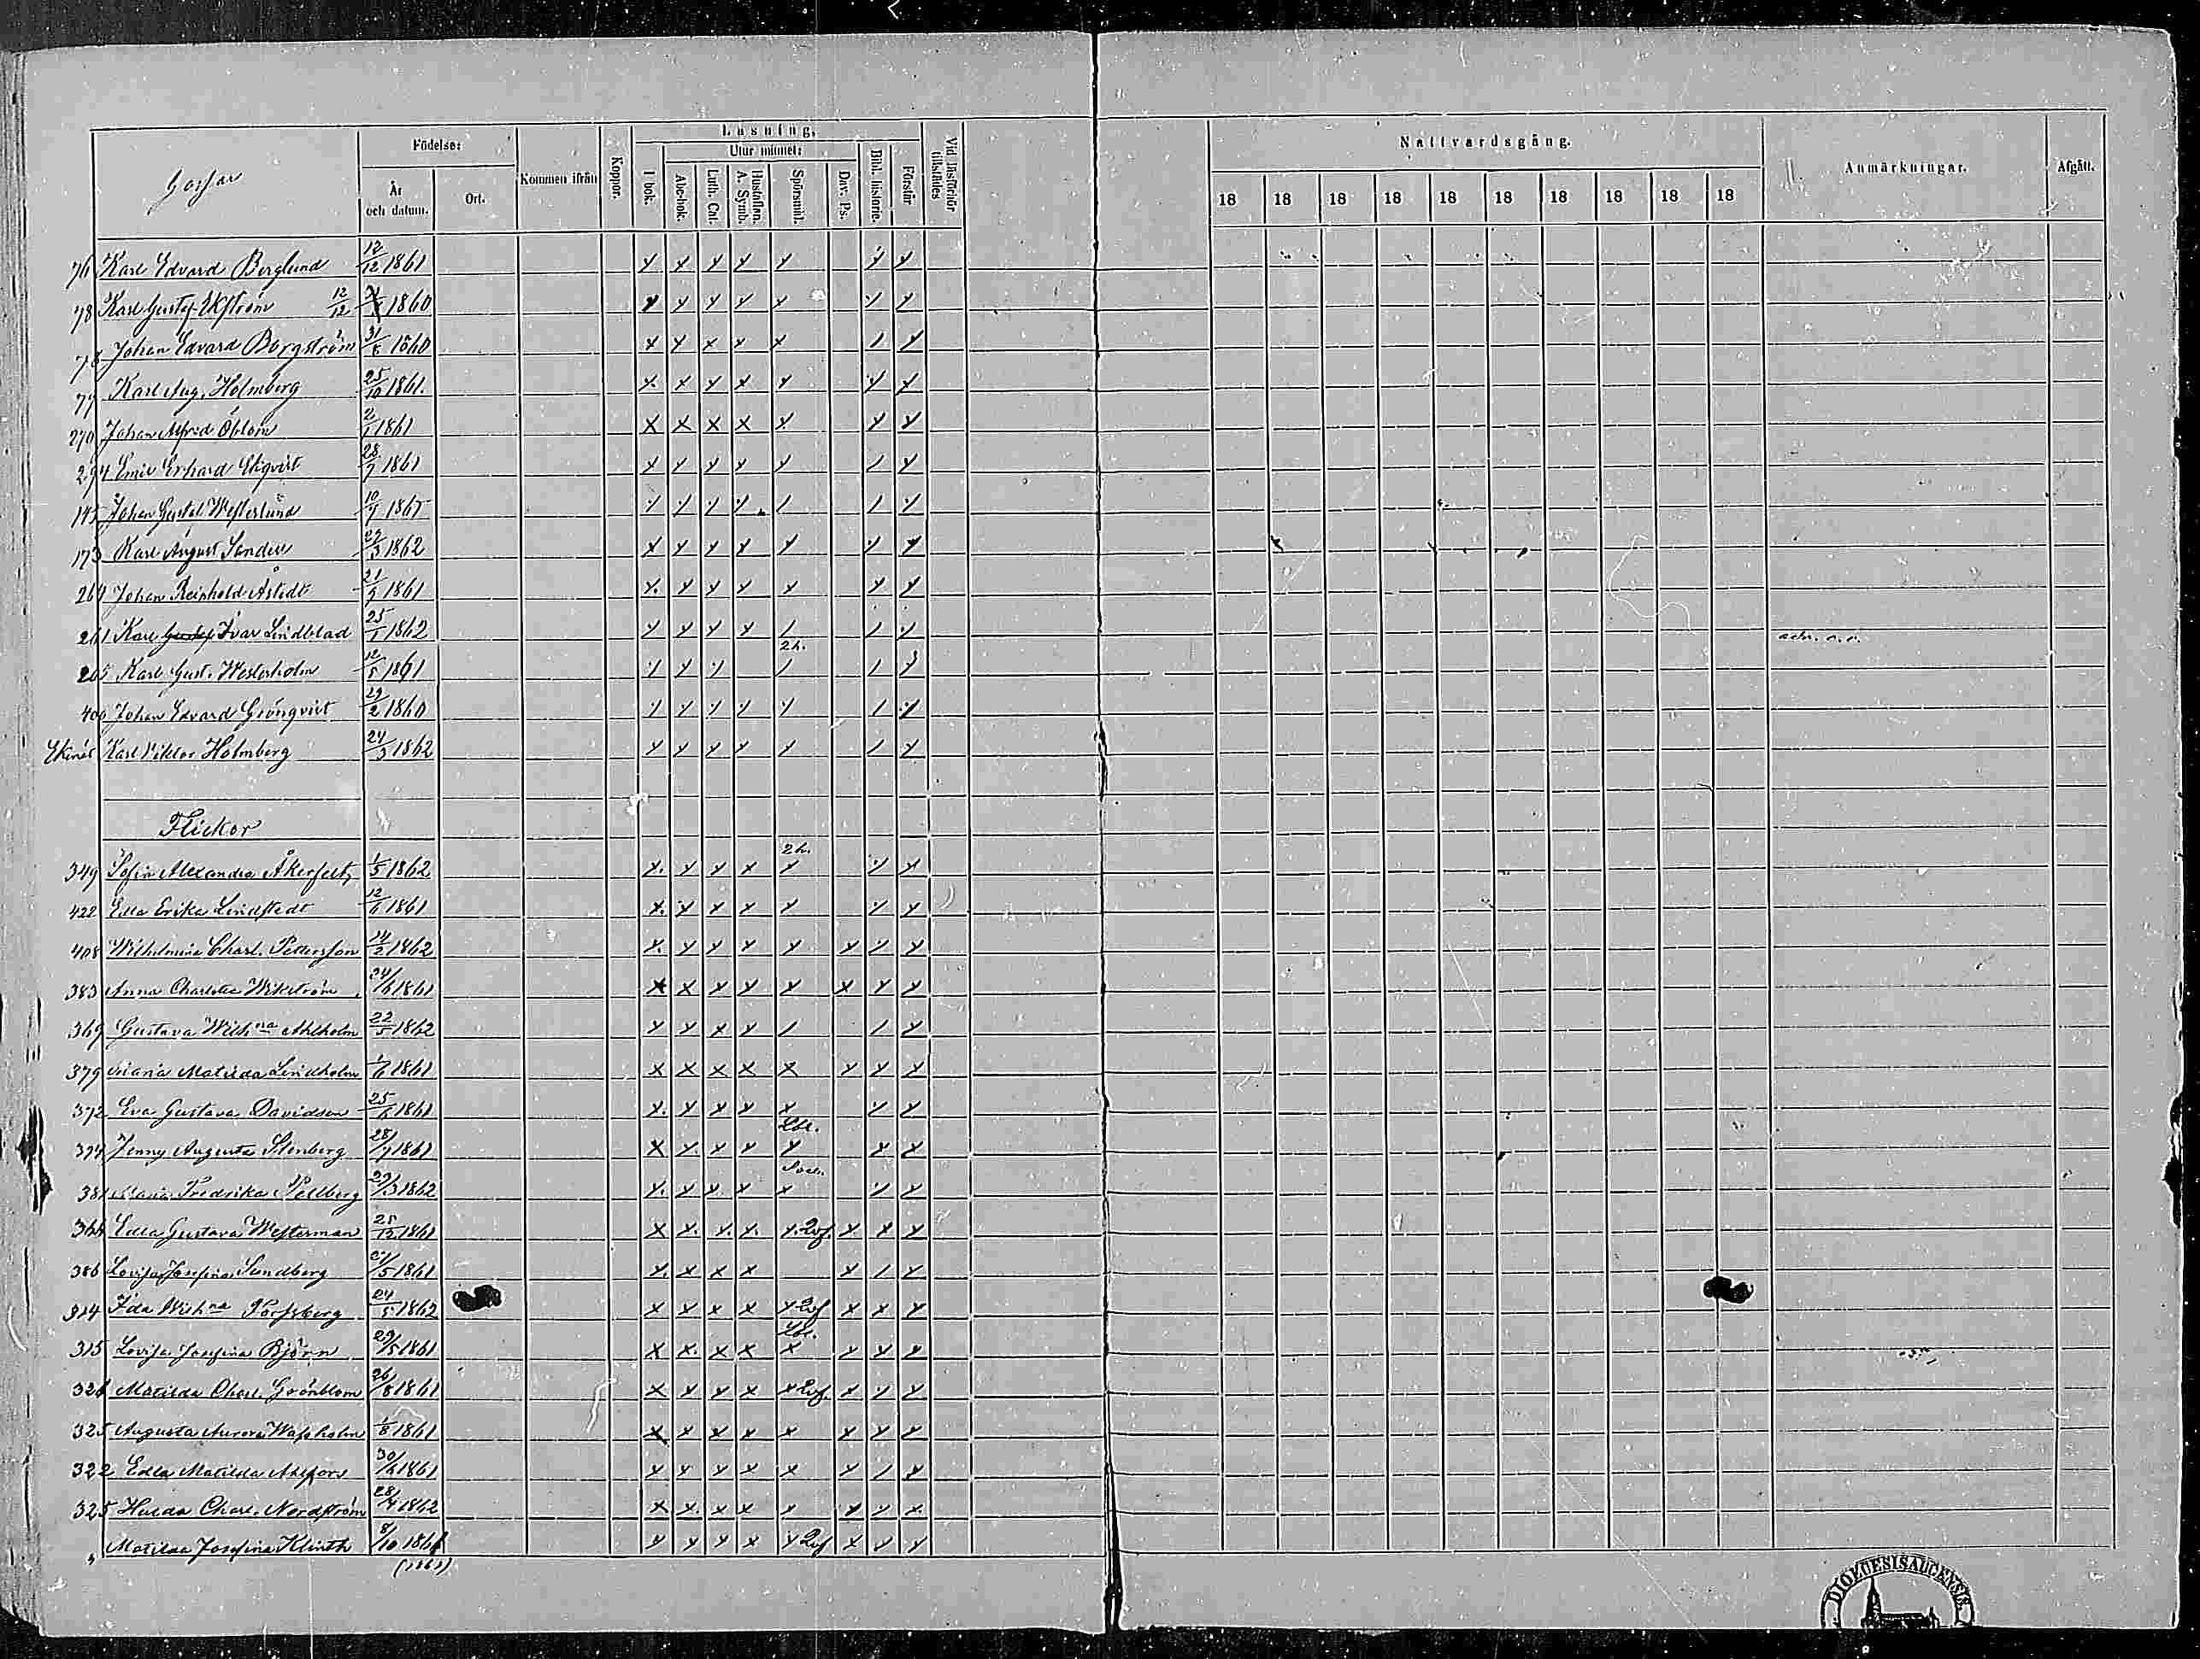 Gossar
Födelse:
År och datum.
Ort.
Kommen ifrån
Koppor.
Läsning,
Utur minnet:
I bok.
Abc-bok.
Luth. Cat.
Hustaflan. A. Symb.
Spörsmål.
Dav. Ps.
Bibl. historie.
Förstår
Vid läsförhör tillstädes
Nattvardsgång.
18 18 18 18 18 18 18 18 18 18
Anmärkningar.
Afgått.
76 Karl Edvard Berglund 12/12 1861
78 Karl Gustaf Ekström 12/12 1860
78 Johan Edvard Borgström 31/8 1860
77 Karl Aug. Holmberg 25/10 1861.
270 Johan Alfred Öblom 2/1 1861
294 Emil Erhard Ekqvist 28/7 1861
145 Johan Gustaf Westerlund 10/9
173 Karl August Sandell 3 1862
264 Johan Reinhold Åstedt 21/5 1861
261 Karl Gustaf Ivar Lindblad 25/1 1862
205 Karl Gust. Westerholm 12/5 1861 2h.
400 Johan Edvard Grönqvist 29/2 1860
Ekenäs Karl Viktor Holmberg 24/3 1862
Flickor
349 Sofia Alexandra Åkerfelt 1/5 1862 2h.
422 Edla Erika Lindstedt 12/6 1861
408 Wilhelmina Charl. Pettersson 14/2 1862
383 Anna Charlotta Wikström 24/6 1861
369 Gustava Wilhna Ahlholm 22/5 1862
379 Maria Matilda Lindholm 1/6 1861
372 Eva Gustava Davidson 25/6 1861
374 Jenny Augusta Stenberg 28/7 1861
381 Maria Fredrika Sellberg 29/3 1862
366 Edla Gustava Westerman 25/12 1861
386 Lovisa Josefina Sundberg /5 1861
314 Ida Wilhna Forssberg 24/5 1862
315 Lovisa Josefina Björn 29/5 1861
328 Matilda Charl. Grönblom 26/8 1861
325 Augusta Aurora Wassholm 1/8 1861
322 Edla Matilda Ahlfors 30/6 1861
325 Hulda Charl. Nordström 28/4 1862
" Matilda Josefina Klinth 8/10 1861
(1861)
DIOECESIS ABOENSIS